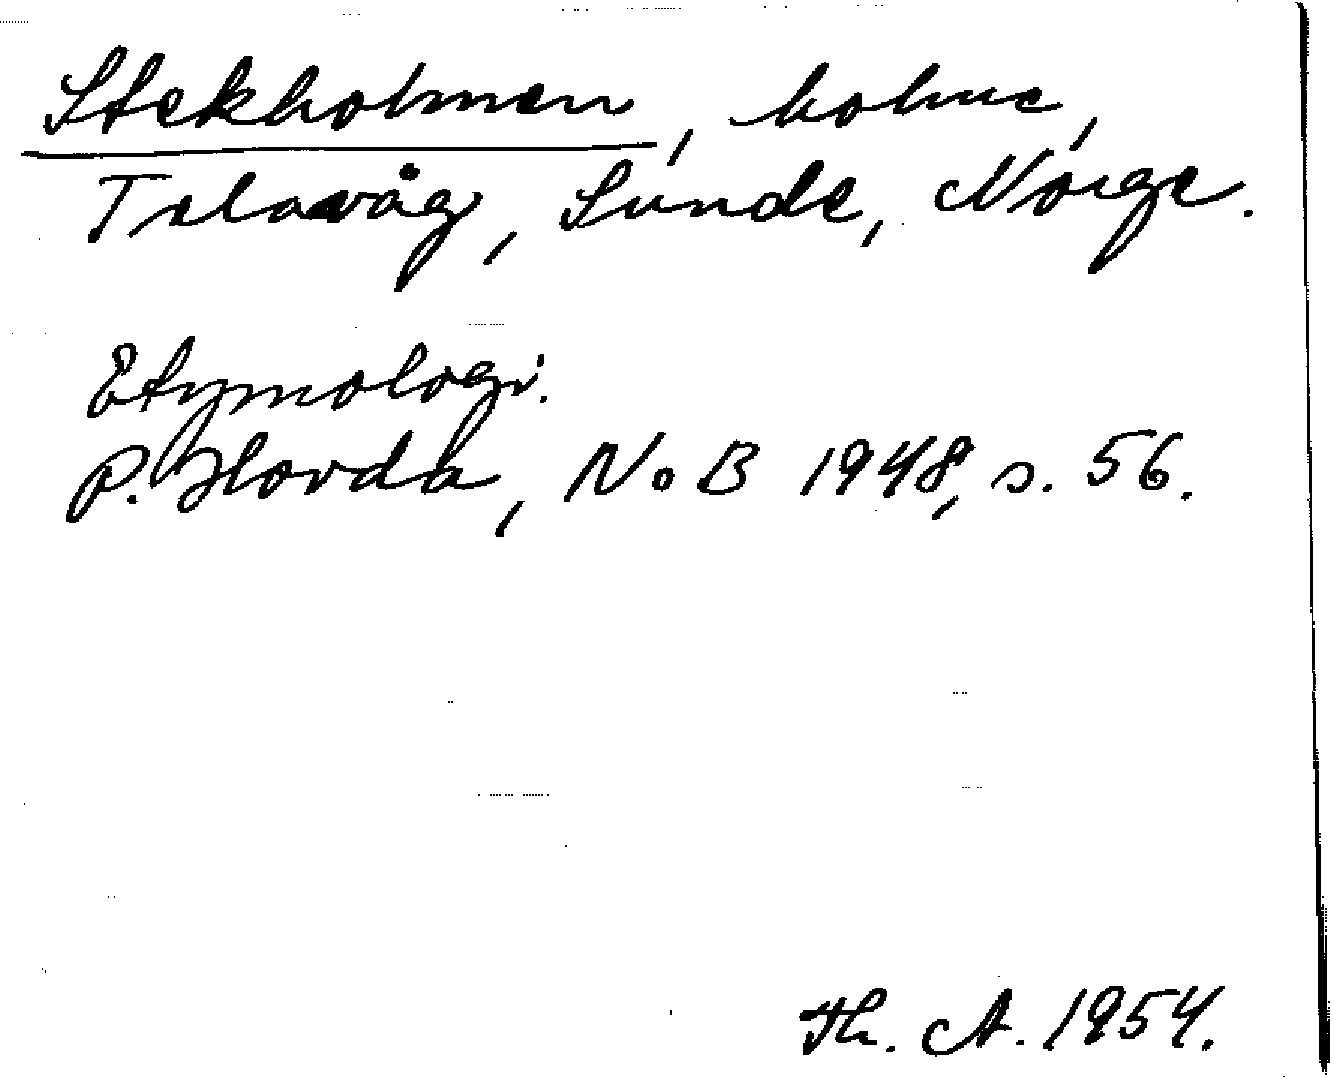 Stekholmen, holme,
Telavåg, Sunde, Norge.
Etymologi.
P. Hovda, NoB 1948, s. 56.
Th. A. 1954.